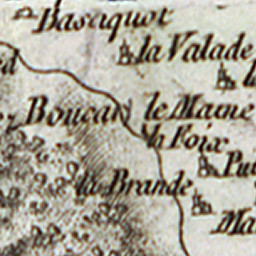 Basaquot
la Valade
Boucan
le Maine
la Foix
Pui
la Brande
Ma